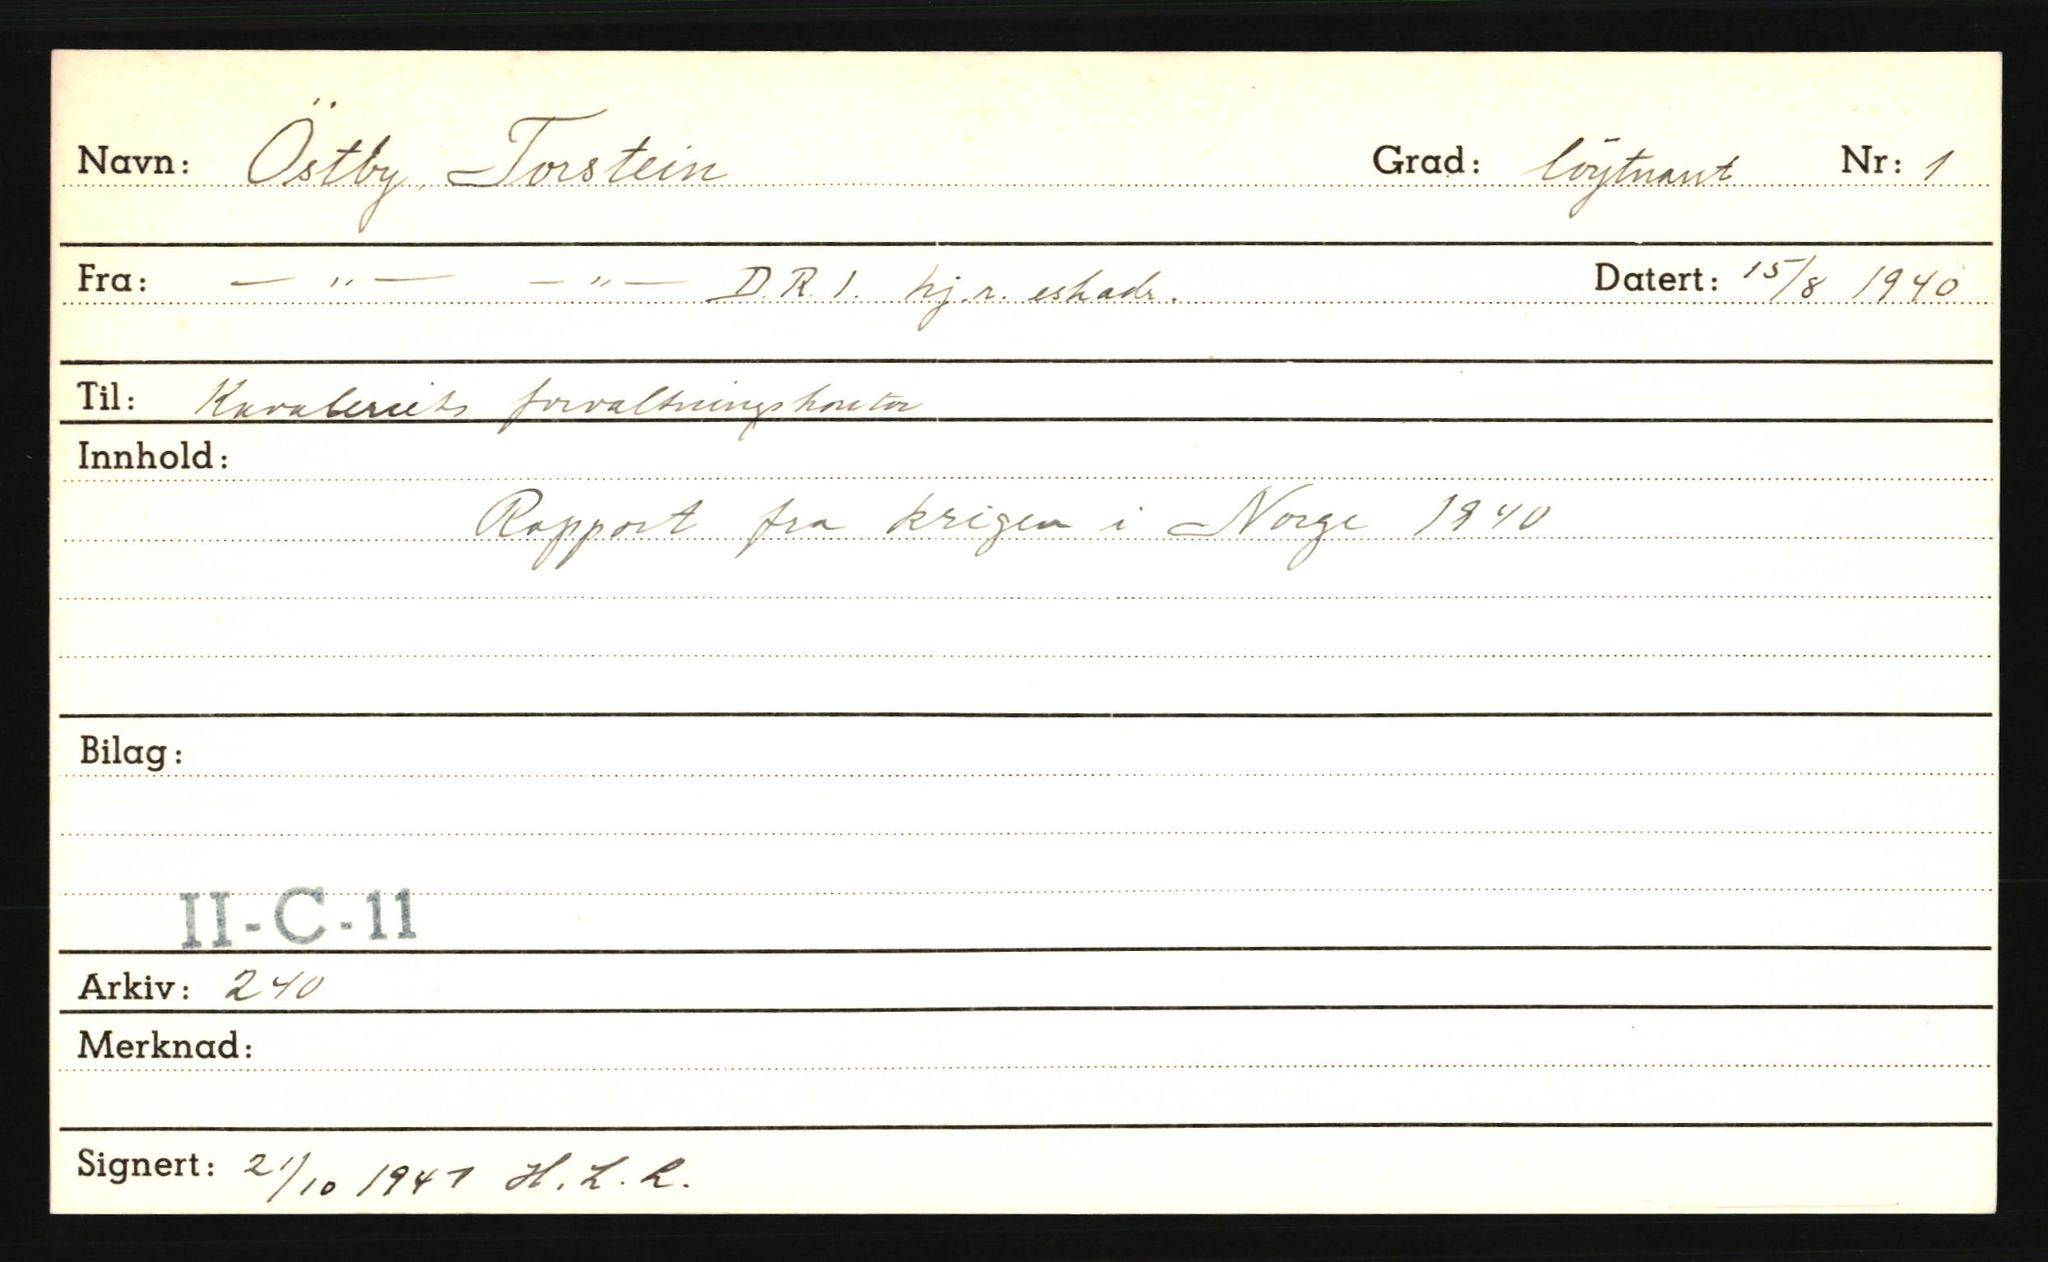 Navn: Östby, Torstein Grad: löytnant Nr: 1
Fra: — " — — " — D.R. 1. hj.r. eskadr. Datert: 15/8 1940
Til: Kavaleriets forvaltningskontor
Innhold:
Rapport fra krigen i Norge 1940
Bilag:
II-C-11
Arkiv: 240
Merknad:
Signert: 21/10 1947 H. L. L.